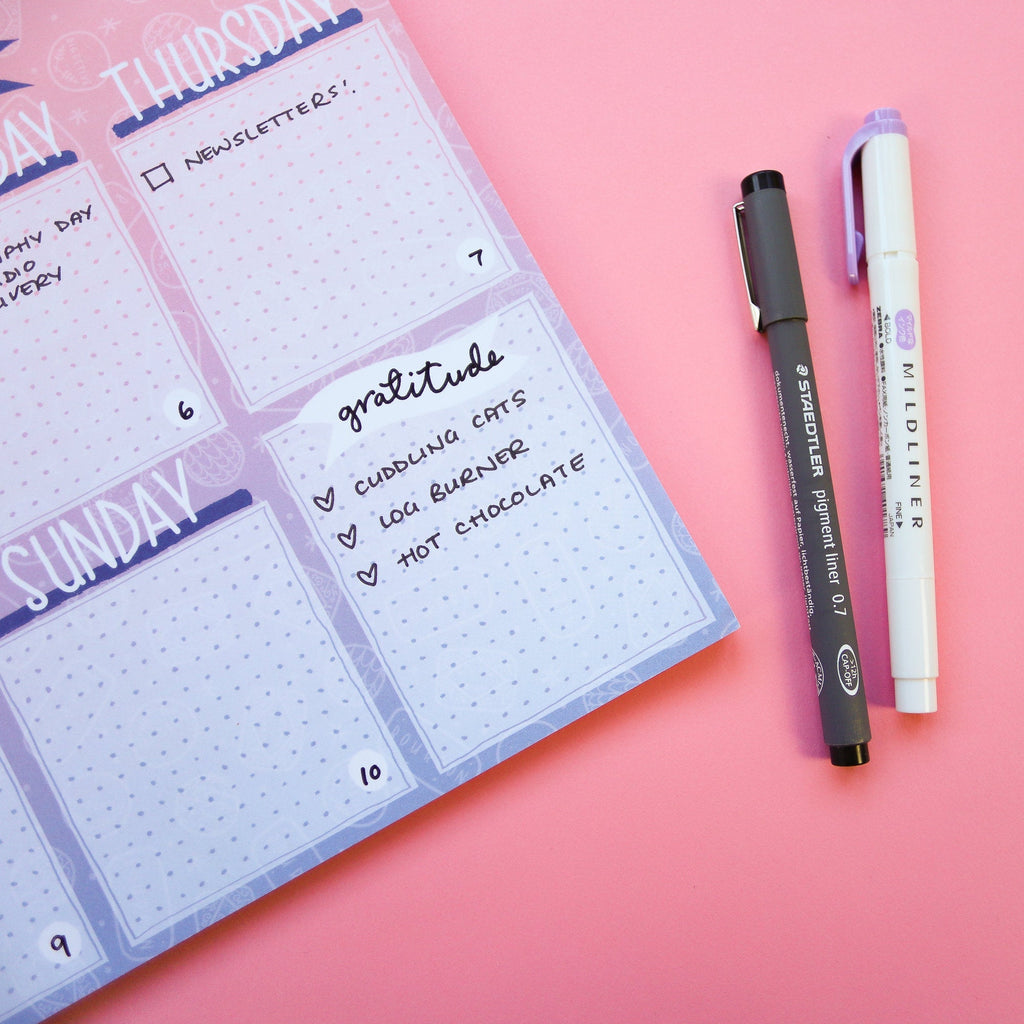 THURSDAY
NEWSLETTERS!
7
DAY
DAY
6
gratitude
CUDDLING CATS
LOG BURNER
HOT CHOCOLATE
SUNDAY
10
9
STAEDTLER pigment liner 0.7
dokumentenecht, wasserfest auf Papier, lichtbeständig,
>12h
CAP-OFF
ZEBRA
MILDLINER
BOLD
FINE
JAPAN